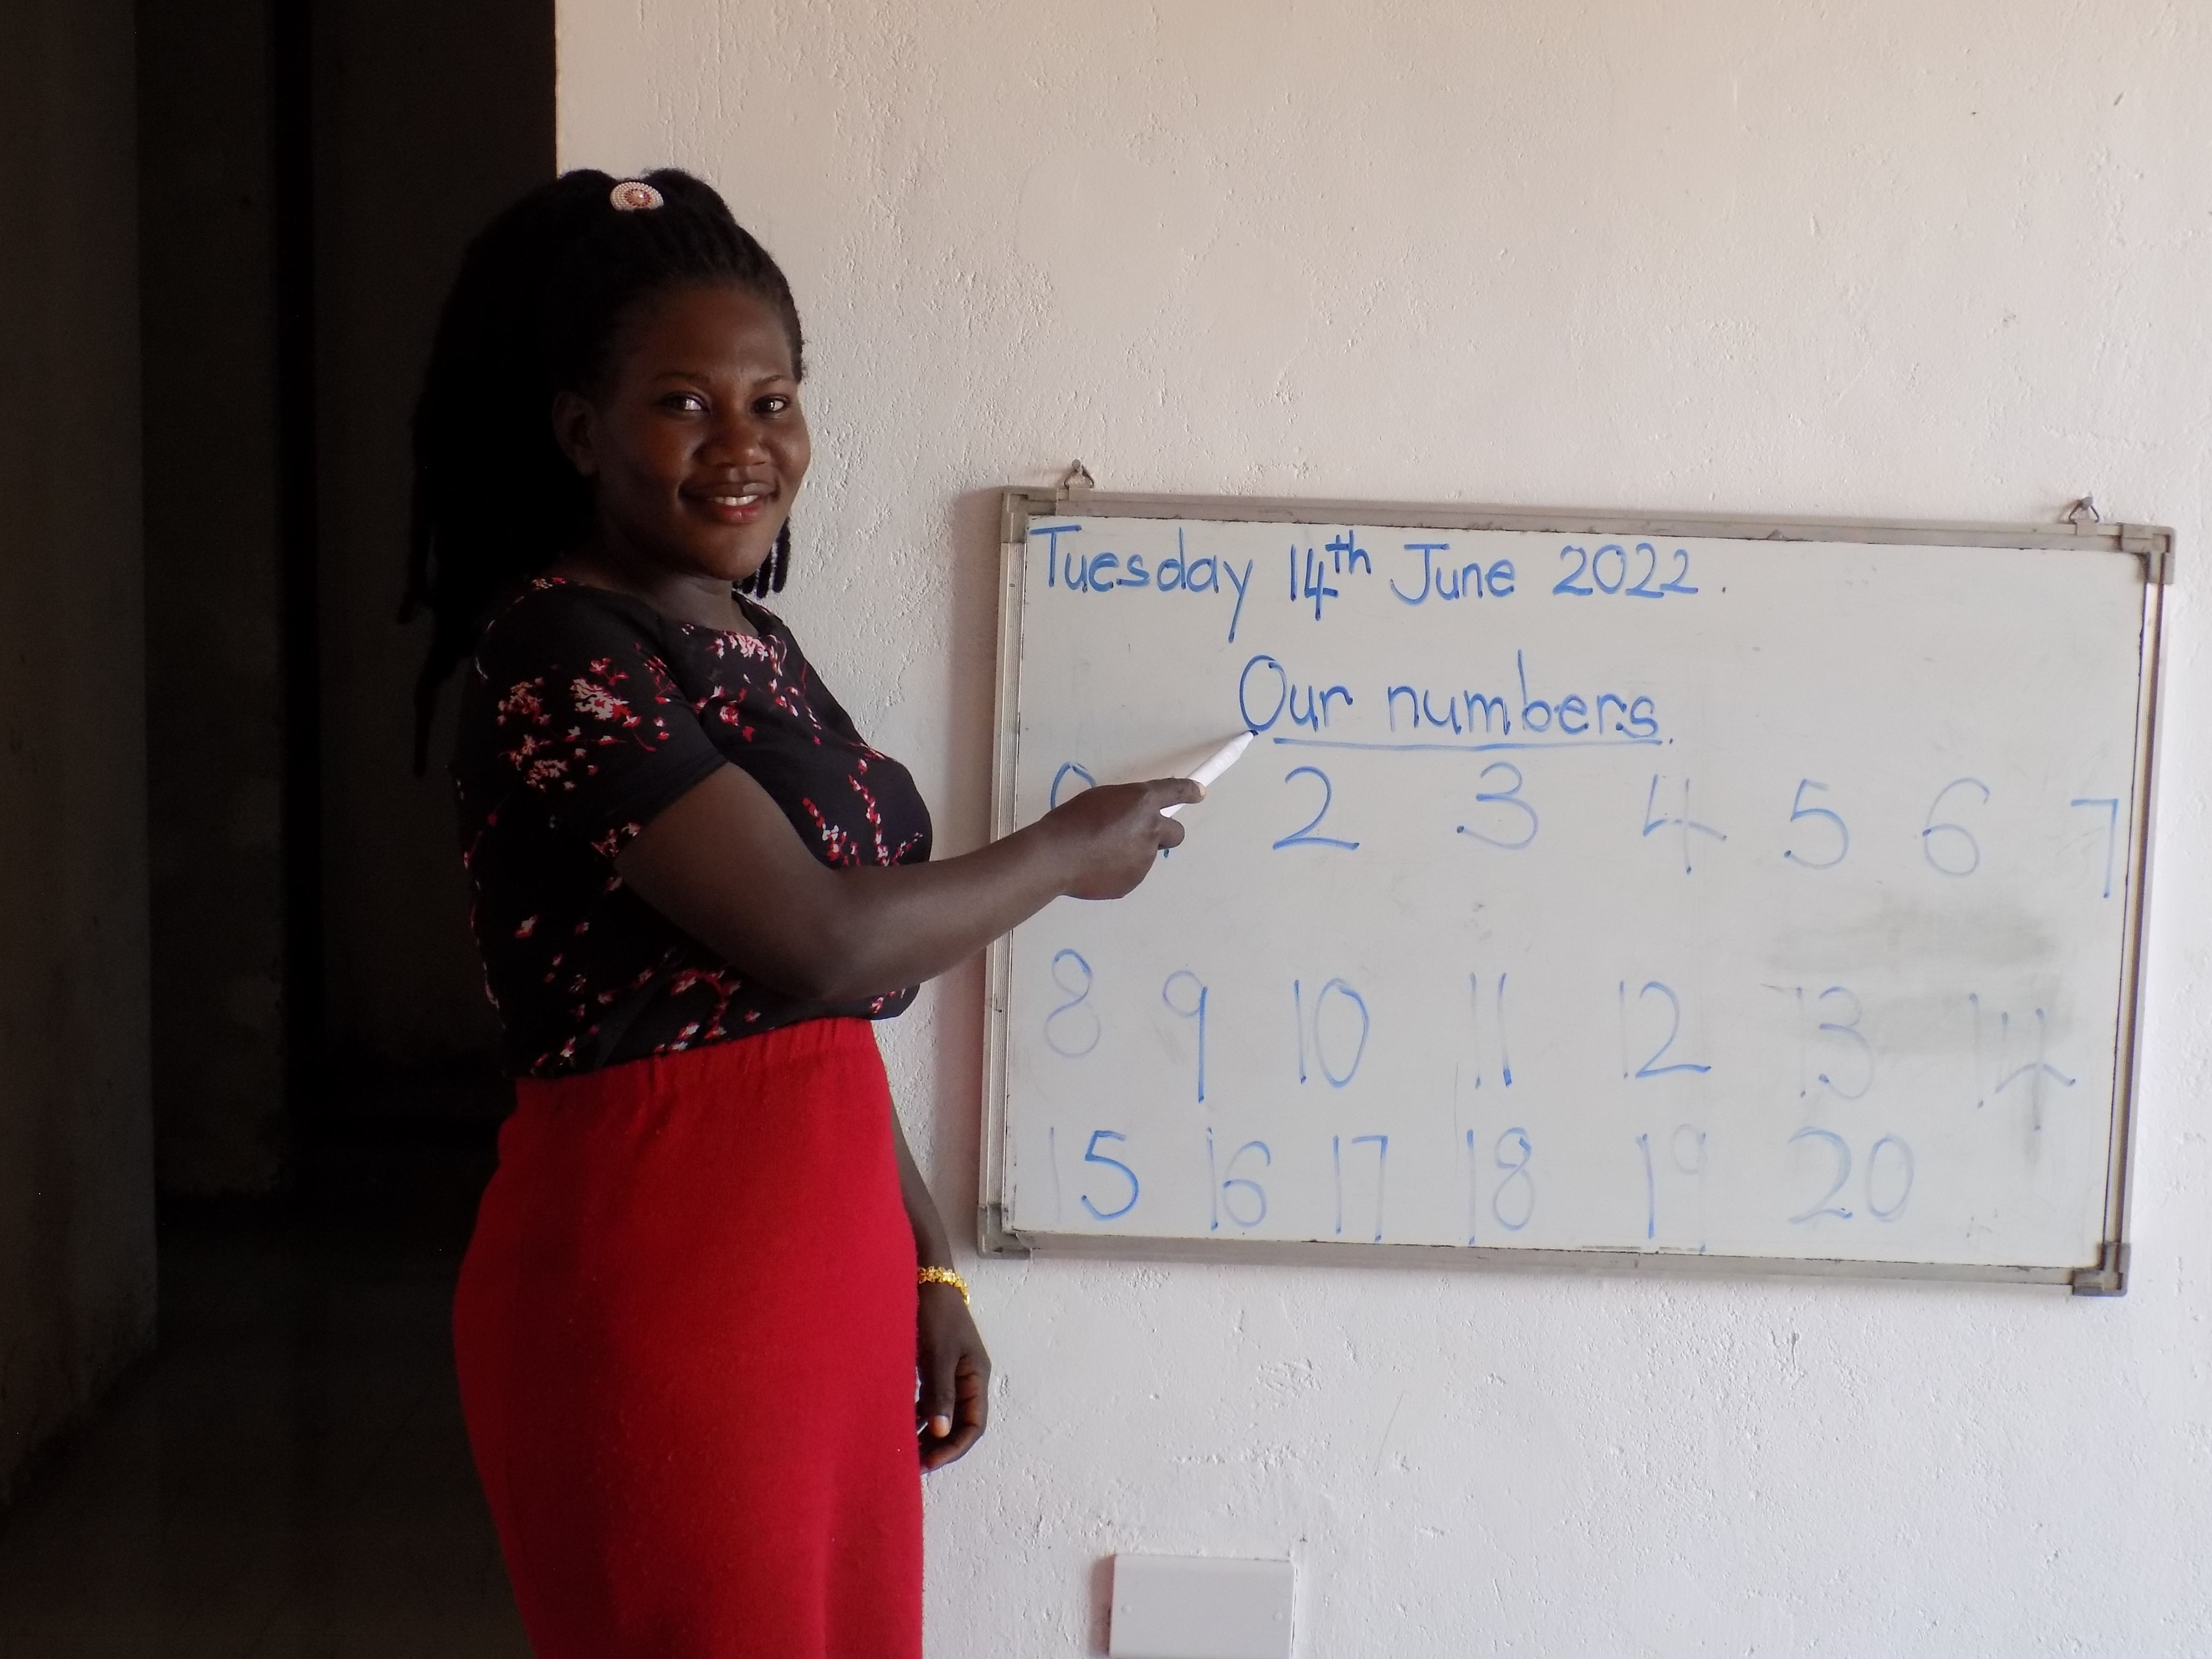 Tuesday 14th June 2022.
Our numbers.
0 2 3 4 5 6 7
8 9 10 11 12 13 14
15 16 17 18 19 20